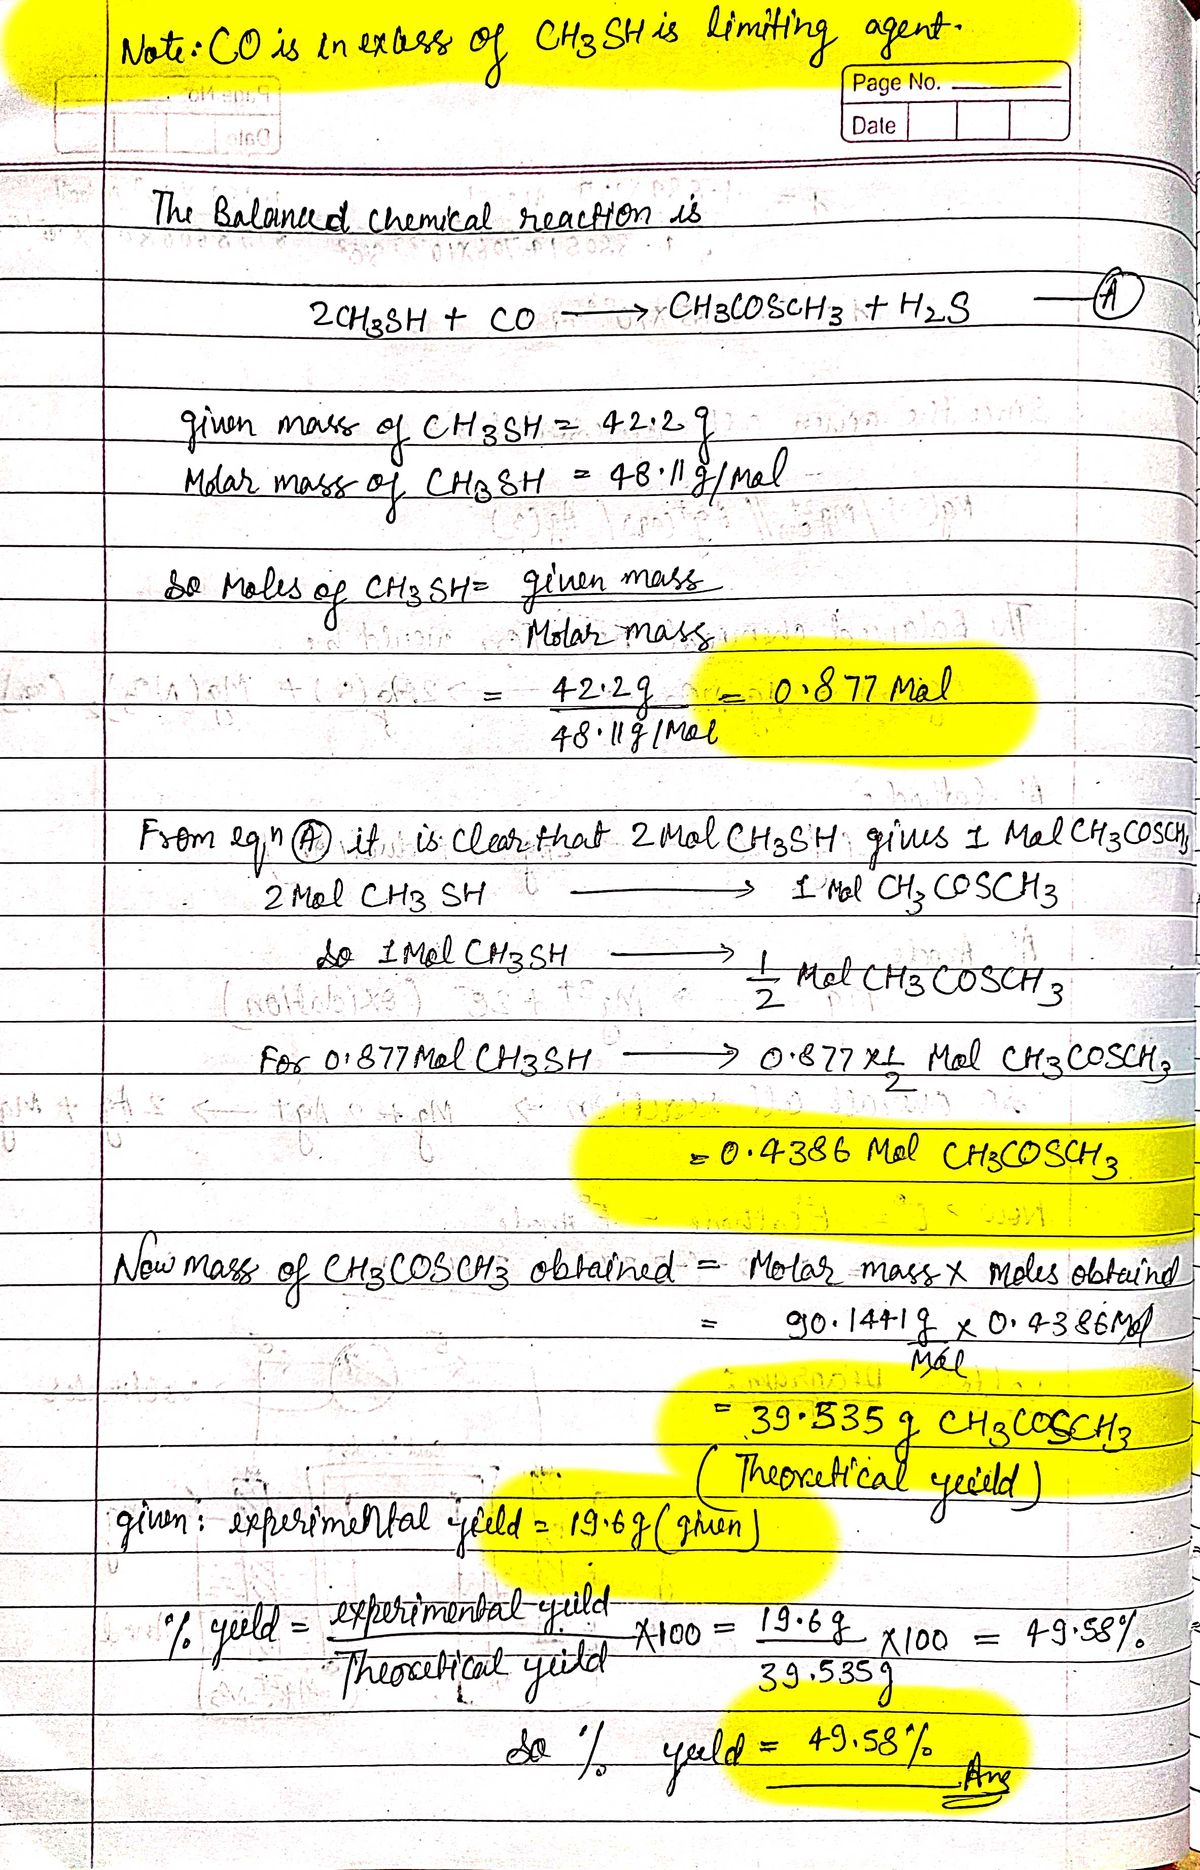 Note: CO is in excess of CH3SH is limiting agent.
Page No.
Date
The Balanced chemical reaction is
2CH3SH + CO → CH3COSCH3 + H2S — A
given mass of CH3SH = 42.2 g
Molar mass of CH3SH = 48.11 g/Mol
So Moles of CH3SH = given mass
Molar mass
= 42.2g = 0.877 Mol
48.11g/Mol
From eqn A it is clear that 2 Mol CH3SH gives 1 Mol CH3COSCH3
2 Mol CH3SH → 1 Mol CH3COSCH3
So 1 Mol CH3SH → 1/2 Mol CH3COSCH3
For 0.877 Mol CH3SH → 0.877 x 1/2 Mol CH3COSCH3
= 0.4386 Mol CH3COSCH3
Now mass of CH3COSCH3 obtained = Molar mass x moles obtaind
= 90.1441g x 0.4386Mol
Mol
= 39.535 g CH3COSCH3
(Theoretical yeield)
given: experimental yield = 19.6g (given)
% yield = experimental yield x100 = 19.6g x100 = 49.58%
Theoretical yield 39.535g
So % yield = 49.58% Ans